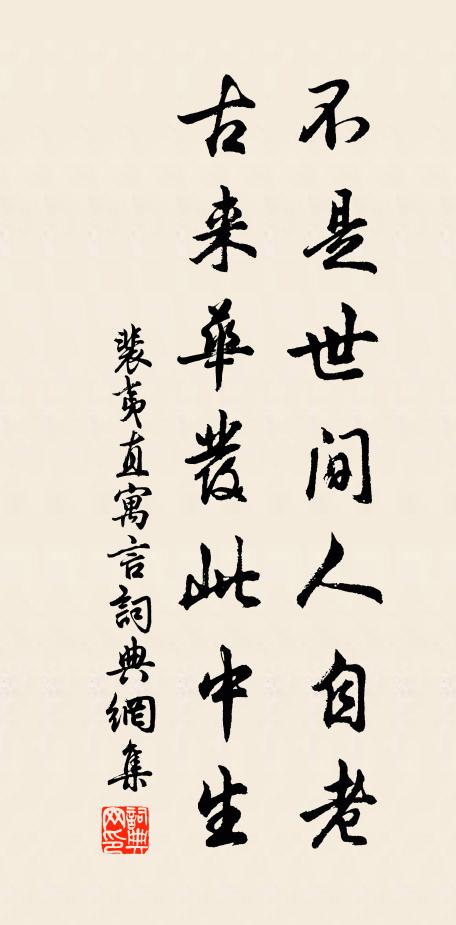 不是世间人自老
古来華髮此中生
裴夷直寓言詞典網集
詞典
网印